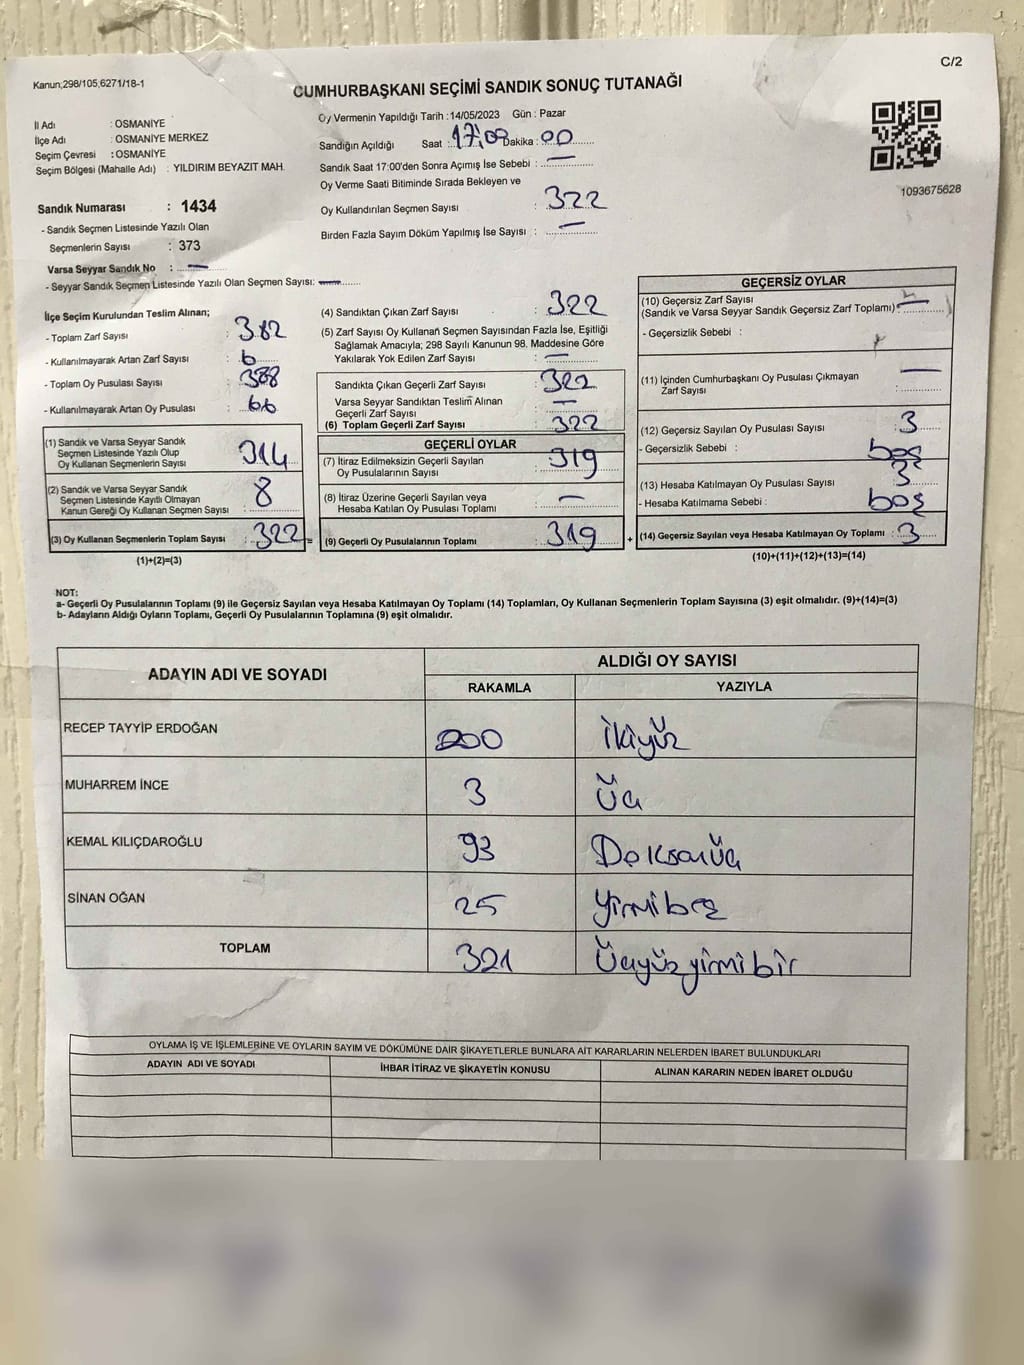 C/2
Kanun;298/105,6271/18-1
CUMHURBAŞKANI SEÇİMİ SANDIK SONUÇ TUTANAĞI
İl Adı : OSMANİYE
İlçe Adı : OSMANİYE MERKEZ
Seçim Çevresi : OSMANİYE
Seçim Bölgesi (Mahalle Adı) : YILDIRIM BEYAZIT MAH.
Sandık Numarası : 1434
- Sandık Seçmen Listesinde Yazılı Olan
Seçmenlerin Sayısı : 373
Varsa Seyyar Sandık No : —
- Seyyar Sandık Seçmen Listesinde Yazılı Olan Seçmen Sayısı: —
Oy Vermenin Yapıldığı Tarih : 14/05/2023 Gün : Pazar
Sandığın Açıldığı Saat : 17:00 Dakika : 00
Sandık Saat 17:00'den Sonra Açımış İse Sebebi : —
Oy Verme Saati Bitiminde Sırada Bekleyen ve
Oy Kullandırılan Seçmen Sayısı : 322
Birden Fazla Sayım Döküm Yapılmış İse Sayısı : —
1093675628
İlçe Seçim Kurulundan Teslim Alınan;
- Toplam Zarf Sayısı : 382
- Kullanılmayarak Artan Zarf Sayısı :
- Toplam Oy Pusulası Sayısı : 388
- Kullanılmayarak Artan Oy Pusulası : 66
(1) Sandık ve Varsa Seyyar Sandık
Seçmen Listesinde Yazılı Olup
Oy Kullanan Seçmenlerin Sayısı : 314
(2) Sandık ve Varsa Seyyar Sandık
Seçmen Listesinde Kayıtlı Olmayan
Kanun Gereği Oy Kullanan Seçmen Sayısı : 8
(3) Oy Kullanan Seçmenlerin Toplam Sayısı : 322
(1)+(2)=(3)
=
(4) Sandıktan Çıkan Zarf Sayısı : 322
(5) Zarf Sayısı Oy Kullanan Seçmen Sayısından Fazla İse, Eşitliği
Sağlamak Amacıyla; 298 Sayılı Kanunun 98. Maddesine Göre
Yakılarak Yok Edilen Zarf Sayısı : —
Sandıkta Çıkan Geçerli Zarf Sayısı : 322
Varsa Seyyar Sandıktan Teslim Alınan
Geçerli Zarf Sayısı : —
(6) Toplam Geçerli Zarf Sayısı : 322
GEÇERLİ OYLAR
(7) İtiraz Edilmeksizin Geçerli Sayılan
Oy Pusulalarının Sayısı : 319
(8) İtiraz Üzerine Geçerli Sayılan veya
Hesaba Katılan Oy Pusulaları Toplamı : —
(9) Geçerli Oy Pusulalarının Toplamı : 319
+
GEÇERSİZ OYLAR
(10) Geçersiz Zarf Sayısı
(Sandık ve Varsa Seyyar Sandık Geçersiz Zarf Toplamı) : —
- Geçersizlik Sebebi :
(11) İçinden Cumhurbaşkanı Oy Pusulası Çıkmayan
Zarf Sayısı : —
(12) Geçersiz Sayılan Oy Pusulası Sayısı : 3
- Geçersizlik Sebebi : boş
(13) Hesaba Katılmayan Oy Pusulası Sayısı : 3
- Hesaba Katılmama Sebebi : boş
(14) Geçersiz Sayılan veya Hesaba Katılmayan Oy Toplamı : 3
(10)+(11)+(12)+(13)=(14)
NOT:
a- Geçerli Oy Pusulalarının Toplamı (9) ile Geçersiz Sayılan veya Hesaba Katılmayan Oy Toplamı (14) Toplamları, Oy Kullanan Seçmenlerin Toplam Sayısına (3) eşit olmalıdır. (9)+(14)=(3)
b- Adayların Aldığı Oyların Toplamı, Geçerli Oy Pusulalarının Toplamına (9) eşit olmalıdır.
ADAYIN ADI VE SOYADI ALDIĞI OY SAYISI
RAKAMLA YAZIYLA
RECEP TAYYİP ERDOĞAN 200 İkiyüz
MUHARREM İNCE 3 Üç
KEMAL KILIÇDAROĞLU 93 Doksanüç
SİNAN OĞAN 25 Yirmibeş
TOPLAM 321 Üçyüzyirmibir
OYLAMA İŞ VE İŞLEMLERİNE VE OYLARIN SAYIM VE DÖKÜMÜNE DAİR ŞİKAYETLERLE BUNLARA AİT KARARLARIN NELERDEN İBARET BULUNDUKLARI
ADAYIN ADI VE SOYADI İHBAR İTİRAZ VE ŞİKAYETİN KONUSU ALINAN KARARIN NEDEN İBARET OLDUĞU